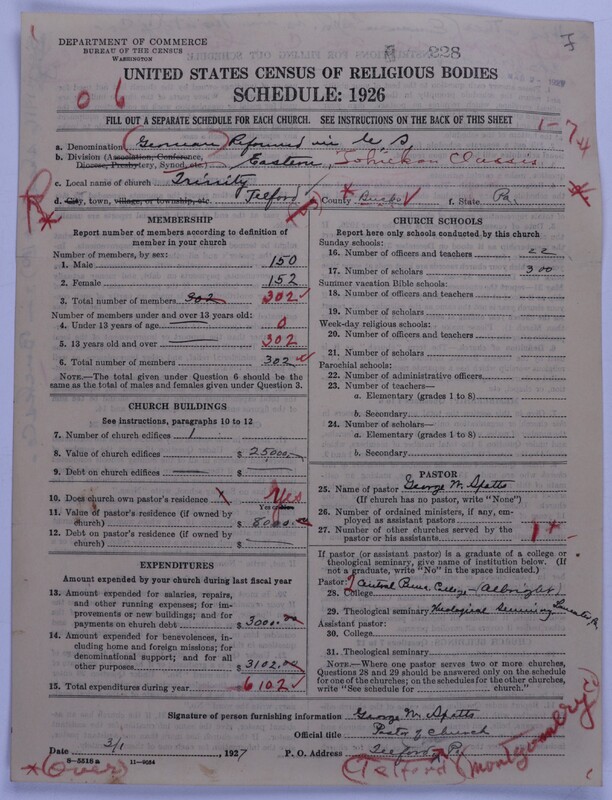 228
DEPARTMENT OF COMMERCE
BUREAU OF THE CENSUS
WASHINGTON
UNITED STATES CENSUS OF RELIGIOUS BODIES
SCHEDULE: 1926
0 6
FILL OUT A SEPARATE SCHEDULE FOR EACH CHURCH. SEE INSTRUCTIONS ON THE BACK OF THIS SHEET
1-74
a. Denomination (German) Reformed in U S
b. Division (Association, Conference, Diocese, Presbytery, Synod, etc.) Eastern, Tohickon Classis
c. Local name of church Trinity
d. City, town, village, or township, etc Telford County Bucks f. State Pa
MEMBERSHIP
Report number of members according to definition of
member in your church
Number of members, by sex:
1. Male 150
2. Female 152
3. Total number of members 302 302
Number of members under and over 13 years old:
4. Under 13 years of age 0
5. 13 years old and over 302
6. Total number of members 302
NOTE.—The total given under Question 6 should be
the same as the total of males and females given under Question 3.
CHURCH BUILDINGS
See instructions, paragraphs 10 to 12
7. Number of church edifices 1
8. Value of church edifices $ 25000
9. Debt on church edifices $
10. Does church own pastor's residence x Yes
Yes or No
11. Value of pastor's residence (if owned by
church) $ 8000.00
12. Debt on pastor's residence (if owned by
church) $
EXPENDITURES
Amount expended by your church during last fiscal year
13. Amount expended for salaries, repairs,
and other running expenses; for im-
provements or new buildings; and for
payments on church debt $ 3000.00
14. Amount expended for benevolences,
including home and foreign missions; for
denominational support; and for all
other purposes $ 3102.00
15. Total expenditures during year $ 6102
CHURCH SCHOOLS
Report here only schools conducted by this church
Sunday schools:
16. Number of officers and teachers 22
17. Number of scholars 300
Summer vacation Bible schools:
18. Number of officers and teachers
19. Number of scholars
Week-day religious schools:
20. Number of officers and teachers
21. Number of scholars
Parochial schools:
22. Number of administrative officers
23. Number of teachers—
a. Elementary (grades 1 to 8)
b. Secondary
24. Number of scholars—
a. Elementary (grades 1 to 8)
b. Secondary
PASTOR
25. Name of pastor George W. Spatts
(If church has no pastor, write "None")
26. Number of ordained ministers, if any, em-
ployed as assistant pastors
27. Number of other churches served by the
pastor or his assistants 1
If pastor (or assistant pastor) is a graduate of a college or
theological seminary, give name of institution below. (If
not a graduate, write "No" in the space indicated.)
Pastor:
28. College Central Penn. College-(Albright)
29. Theological seminary Theological Seminary Lancaster, Pa
Assistant pastor:
30. College
31. Theological seminary
NOTE.—Where one pastor serves two or more churches,
Questions 28 and 29 should be answered only on the schedule
for one of the churches; on the schedules for the other churches,
write "See schedule for church."
Signature of person furnishing information George W. Spatts
Official title Pastor of Church
Date 3/1, 1927 P. O. Address Telford Pa
(Telford Montgomery)
(Over)
8-5518 a 11-9034